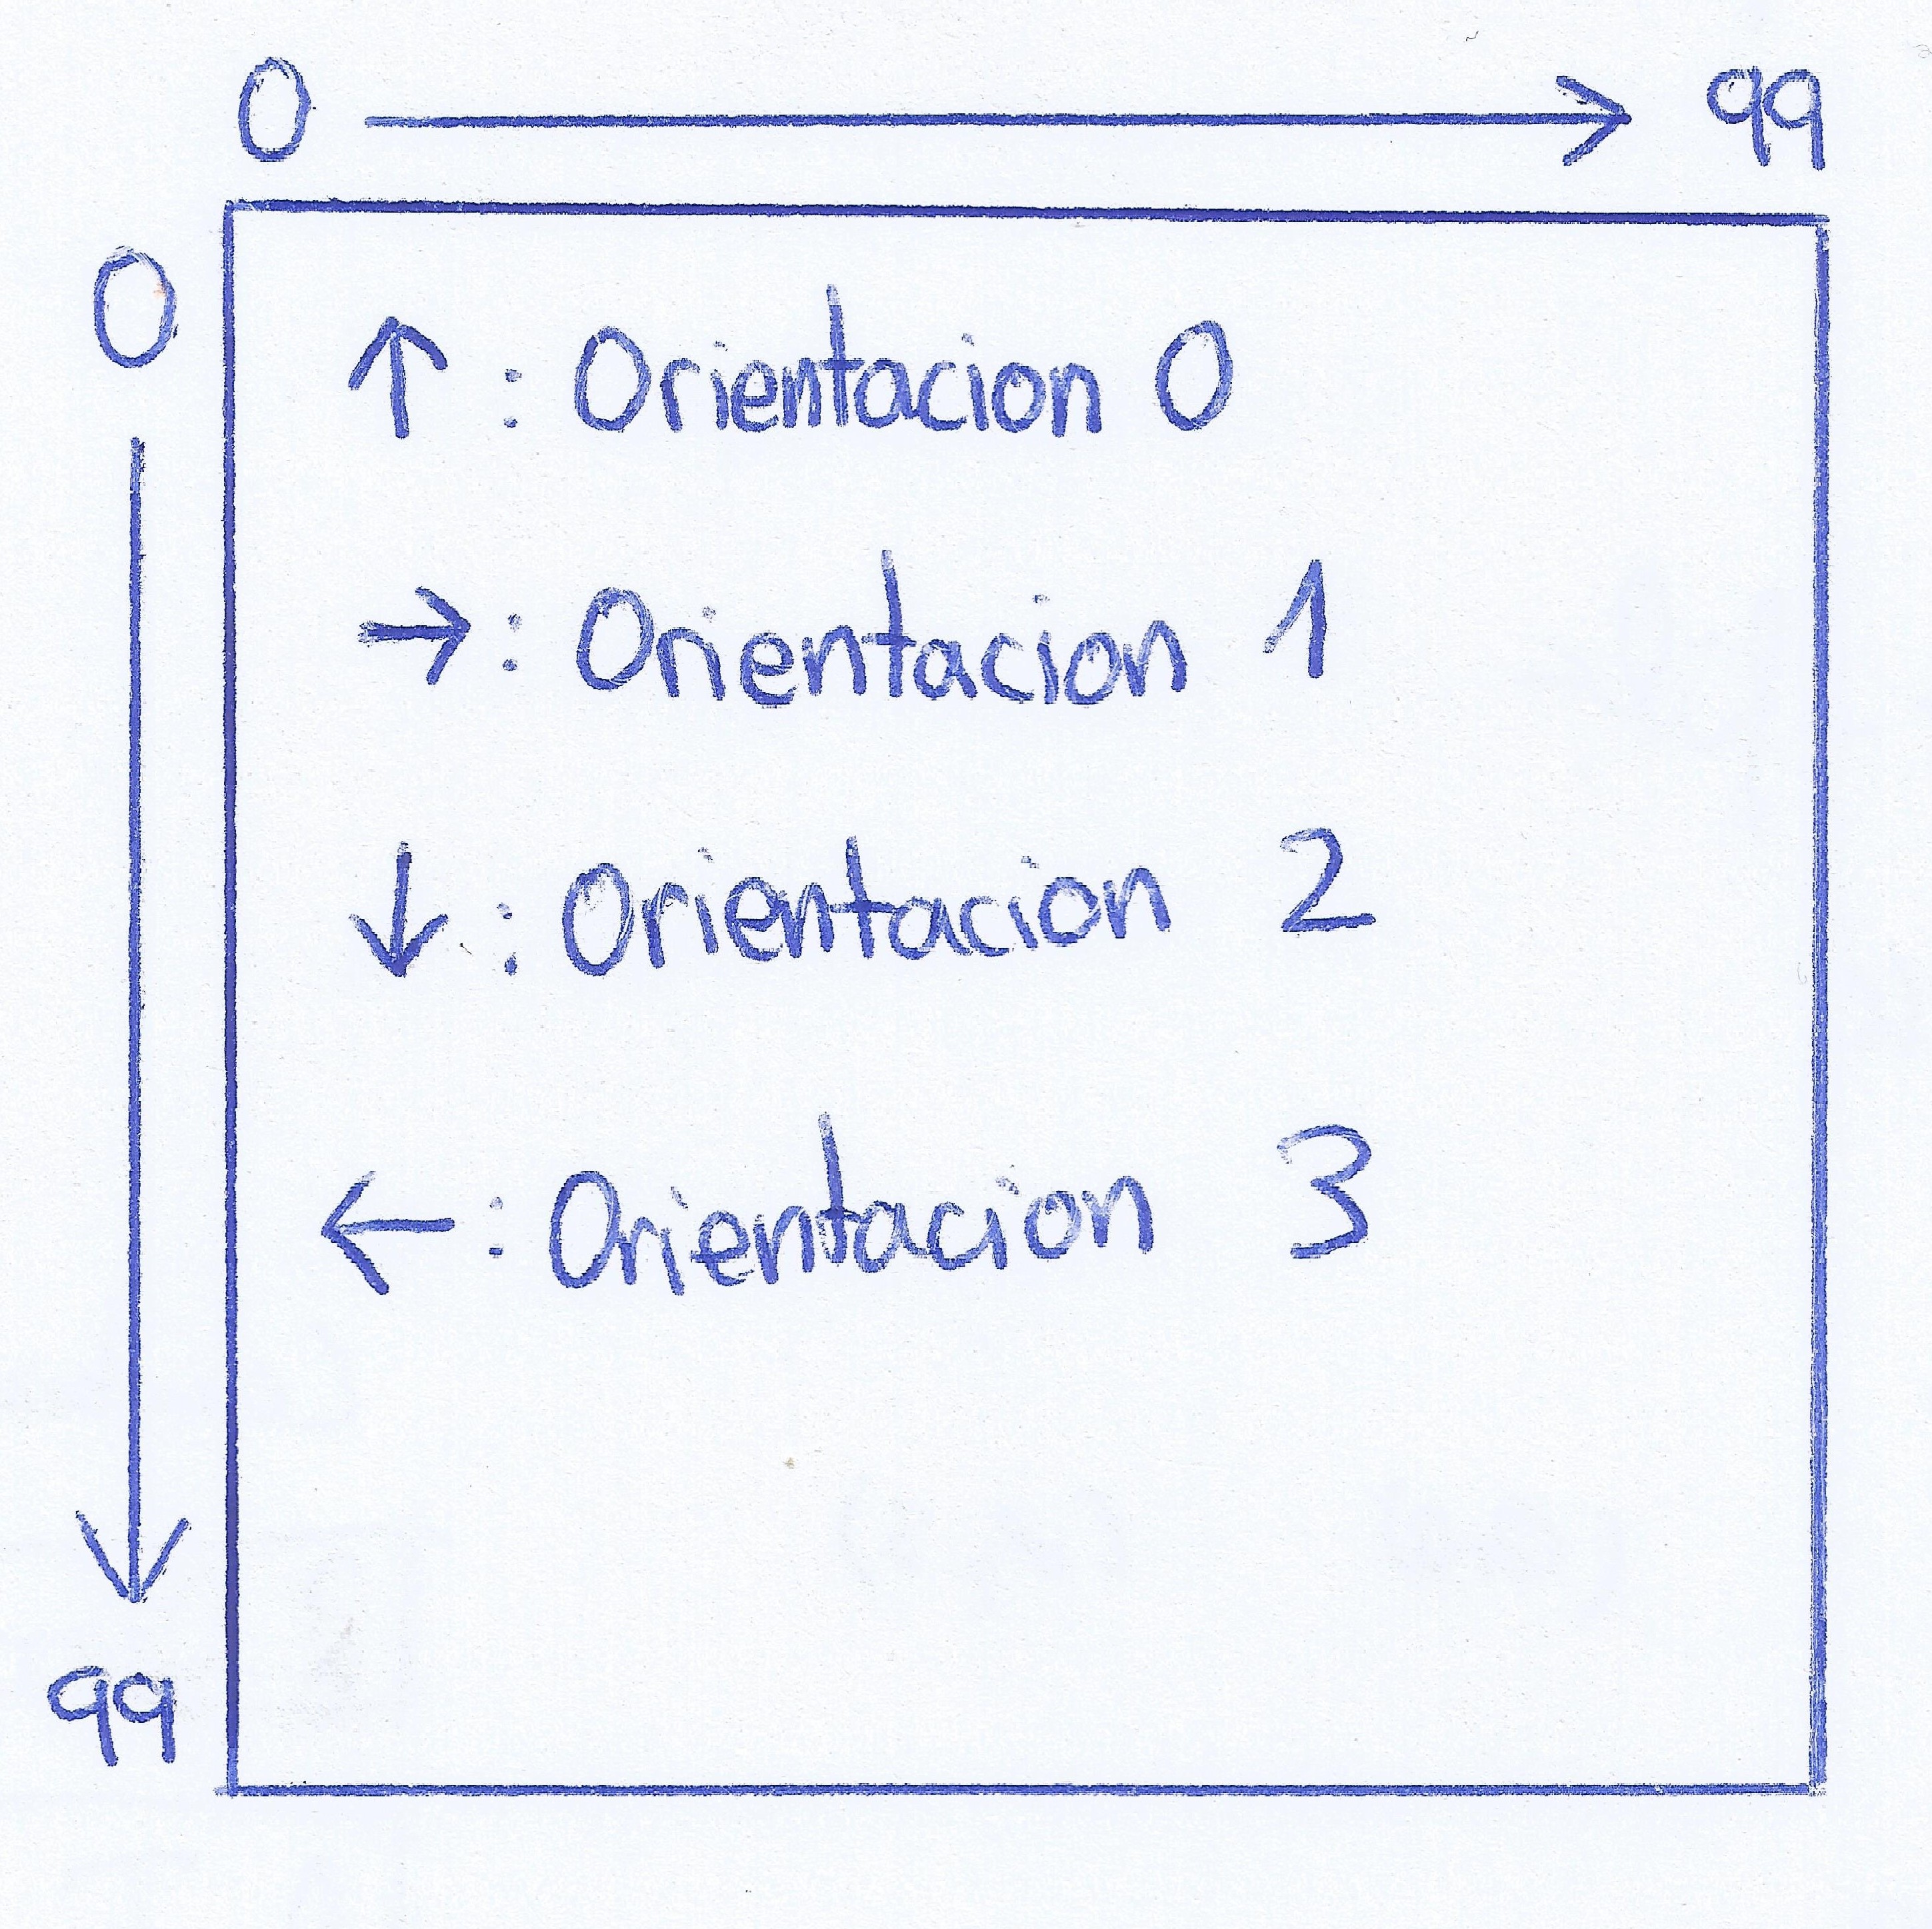 0 → 99
0
↑ : Orientacion 0
→ : Orientacion 1
↓ : Orientacion 2
← : Orientacion 3
99